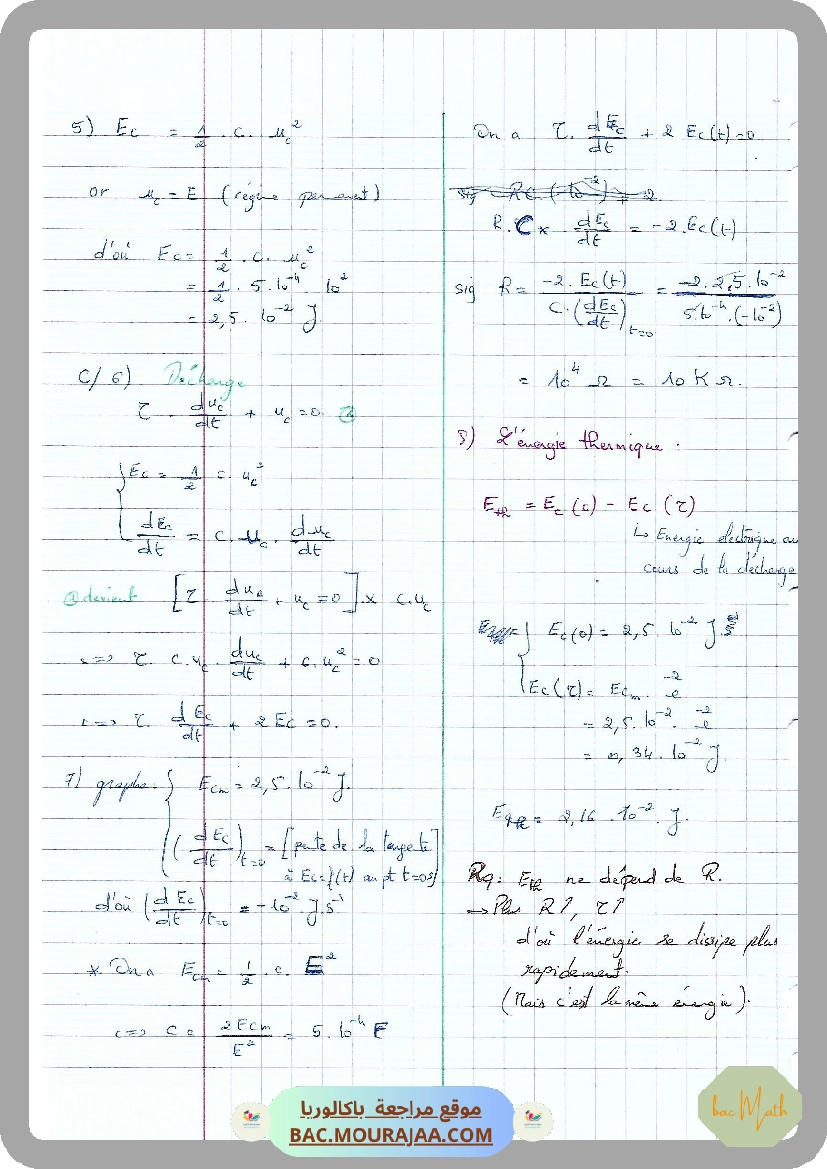 5) Ec = 1/2 . C. uc²
or uc = E (régime permanent)
d'où Ec = 1/2 . C. uc²
= 1/2 . 5.10⁻⁴ . 10²
= 2,5. 10⁻² J
C/ 6) Décharge
τ . duc/dt + uc = 0. ⓐ
{ Ec = 1/2 C. uc²
dEc/dt = C. uc . duc/dt
ⓐ devient [τ duc/dt + uc = 0] x C.uc
<=> τ. C.uc. duc/dt + C.uc² = 0
<=> τ. dEc/dt + 2Ec = 0.
7) graphe: { Ecm = 2,5. 10⁻² J.
(dEc/dt)t=0 = [pente de la tangente
à Ec = f(t) au pt t=0s]
d'où (dEc/dt)t=0 = -10⁻² J.s⁻¹
* On a Ecm = 1/2 . C. E²
<=> C = 2Ecm/E² = 5. 10⁻⁴ F
On a τ. dEc/dt + 2 Ec(t) = 0
R.C x dEc/dt = -2.Ec(t)
sig R = -2. Ec(t)/C.(dEc/dt)t=0 = -2. 2,5. 10⁻²/5.10⁻⁴.(-10⁻²)
= 10⁴ Ω = 10 KΩ.
8) L'énergie thermique :
Eth = Ec(0) - Ec(τ)
↳ Energie électrique au
cours de la décharge
{ Ec(0) = 2,5. 10⁻² J.
Ec(τ) = Ecm. e⁻²
= 2,5. 10⁻². e⁻²
= 0,34. 10⁻² J.
Eth = 2,16 . 10⁻² J.
Rq: Eth ne dépend de R.
→ Plus R↑, τ↑
d'où l'énergie se dissipe plus
rapidement.
(Mais c'est la même énergie).
bac Math
موقع مراجعة باكالوريا
BAC.MOURAJAA.COM